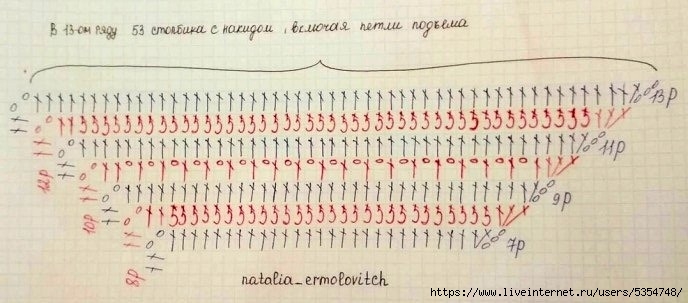 В 13-ом ряду 53 столбика с накидом, включая петли подъема
13р
12р
11р
10р
9р
8р
7р
natalia_ermolovitch
https://www.liveinternet.ru/users/5354748/